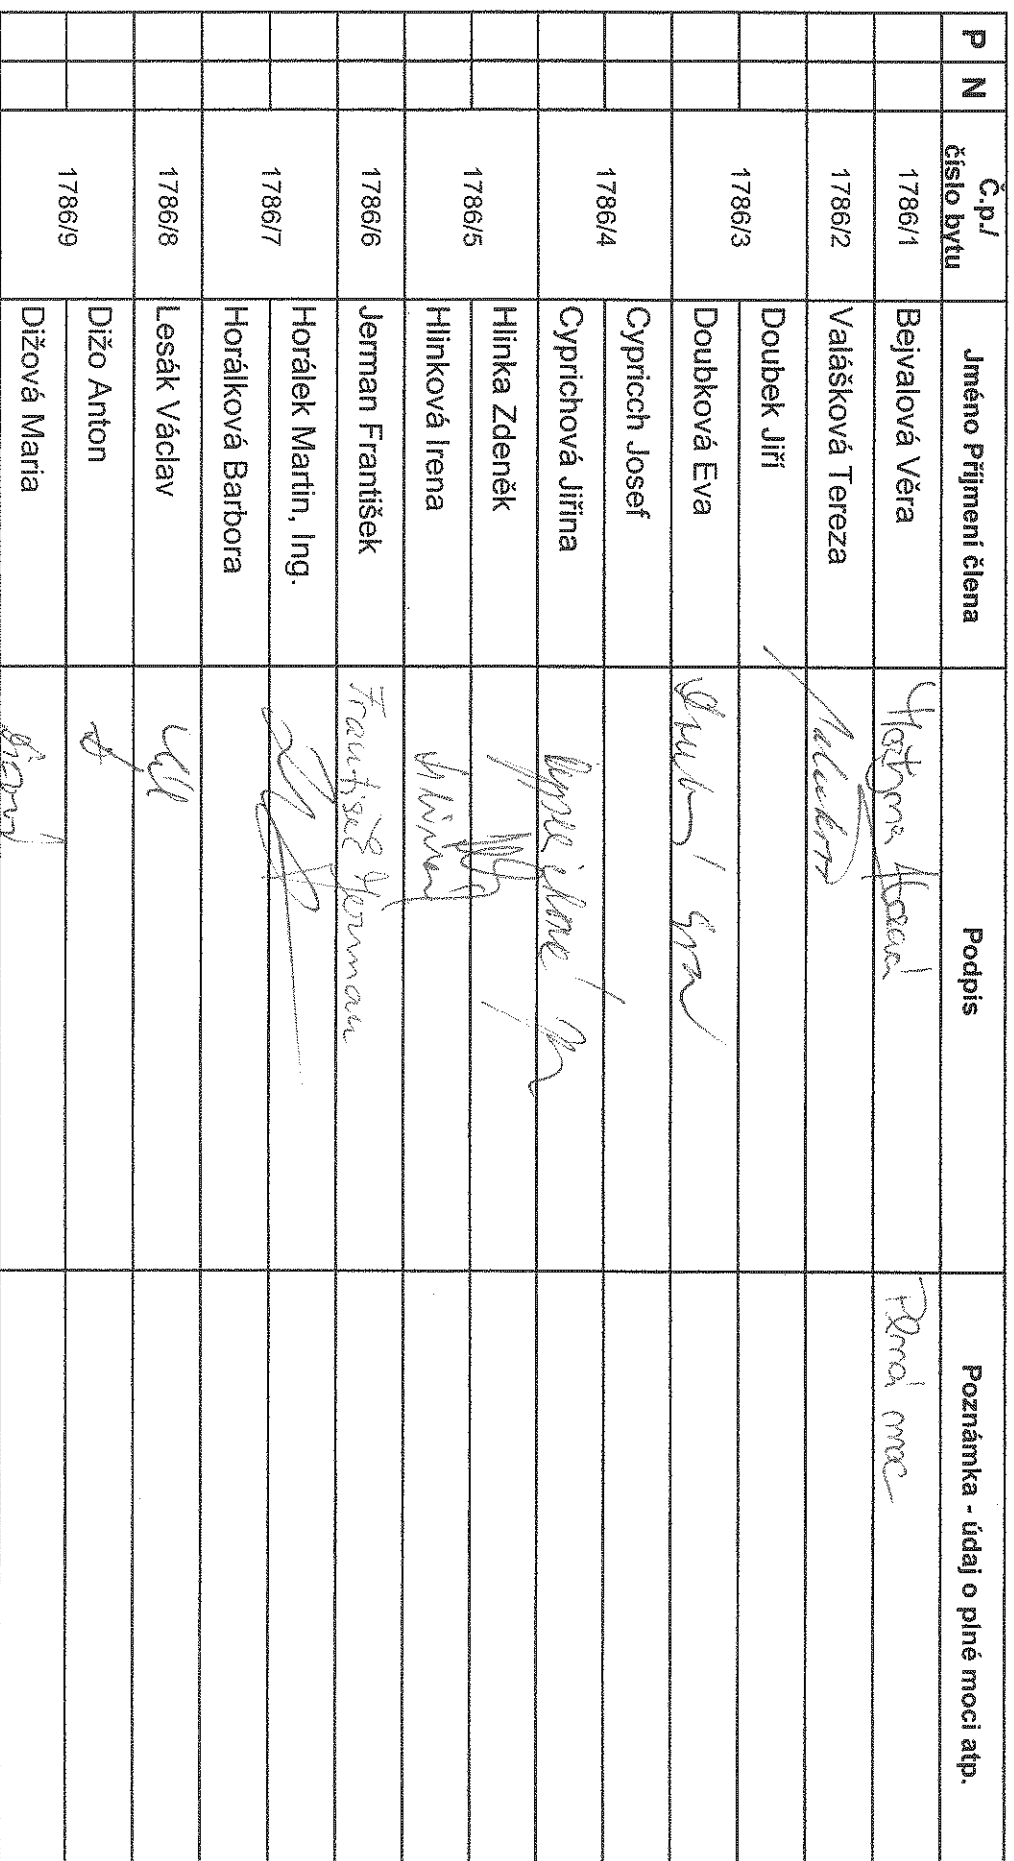 P N Č.p./ číslo bytu Jméno Příjmení člena Podpis Poznámka - údaj o plné moci atp.
1786/1 Bejvalová Věra Plná moc
1786/2 Valášková Tereza
1786/3 Doubek Jiří
Doubková Eva
1786/4 Cypricch Josef
Cyprichová Jiřina
1786/5 Hlinka Zdeněk
Hlinková Irena
1786/6 Jerman František František Jerman
1786/7 Horálek Martin, Ing.
Horálková Barbora
1786/8 Lesák Václav
1786/9 Dižo Anton
Dižová Maria